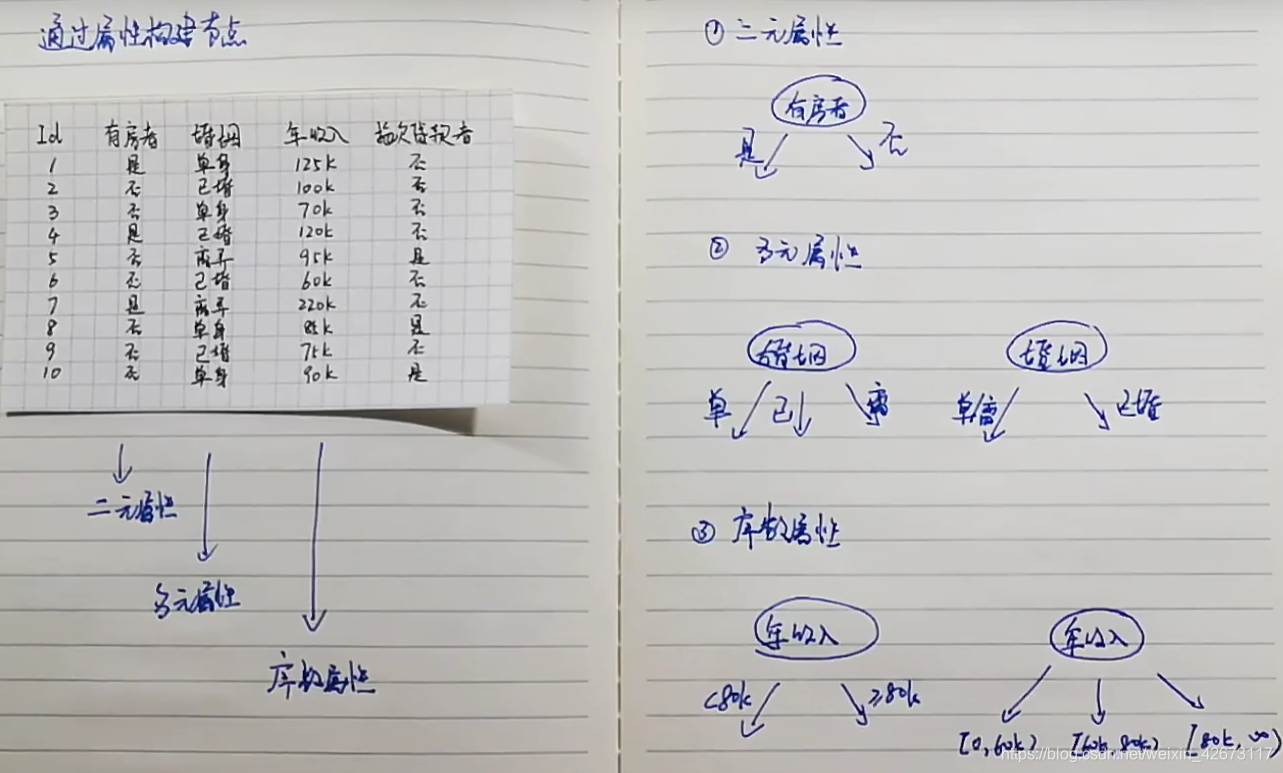 通过属性构建节点
Id 有房者 婚姻 年收入 拖欠贷款者
1 是 单身 125k 否
2 否 已婚 100k 否
3 否 单身 70k 否
4 是 已婚 120k 否
5 否 离异 95k 是
6 否 已婚 60k 否
7 是 离异 220k 否
8 否 单身 85k 是
9 否 已婚 75k 否
10 否 单身 90k 是
二元属性
多元属性
序数属性
① 二元属性
有房者
是 否
② 多元属性
婚姻 婚姻
单 已 离 单/离 已婚
③ 序数属性
年收入 年收入
<80k ≥80k
[0,60k) [60k,80k) [80k,∞)
https://blog.csdn.net/weixin_42673117